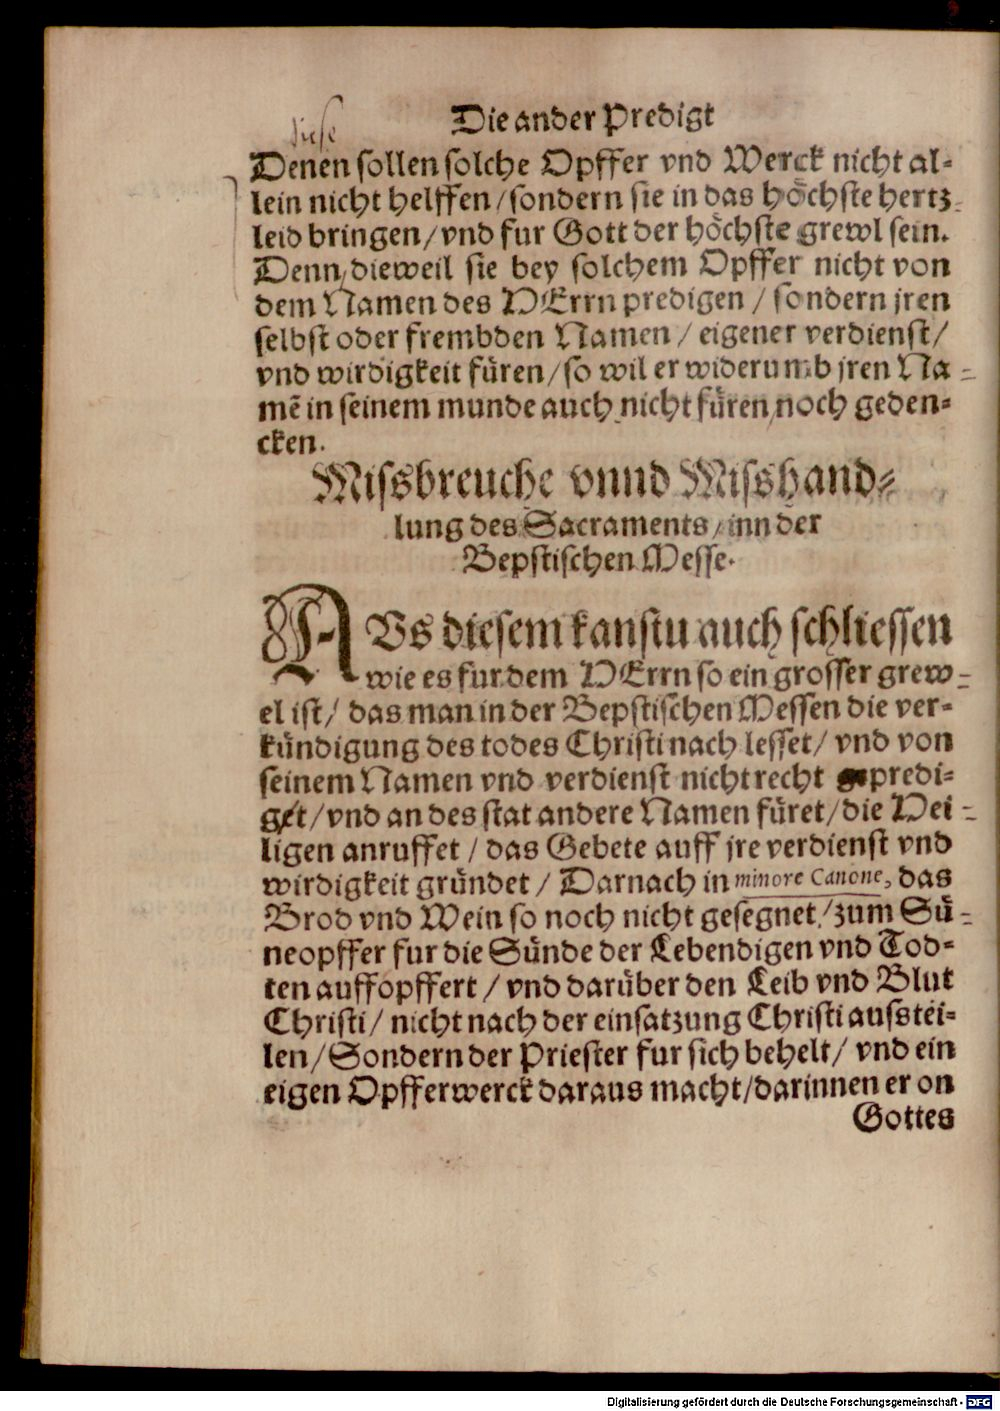 Die ander Predigt
diese
Denen sollen solche Opffer vnd Werck nicht al-
lein nicht helffen/sondern sie in das höchste hertz-
leid bringen/vnd fur Gott der höchste grewl sein.
Denn/dieweil sie bey solchem Opffer nicht von
dem Namen des HErrn predigen / sondern jren
selbst oder frembden Namen / eigener verdienst/
vnd wirdigkeit füren/so wil er widerumb jren Na-
mē in seinem munde auch nicht füren/noch geden-
cken.
Missbreuche vnnd Misshand-
lung des Sacraments/inn der
Bepstischen Messe.
AVs diesem kanstu auch schliessen
wie es fur dem HErrn so ein grosser grew-
el ist/ das man in der Bepstischen Messen die ver-
kündigung des todes Christi nach lesset/ vnd von
seinem Namen vnd verdienst nicht recht predi-
get/vnd an des stat andere Namen füret/die Hei-
ligen anruffet / das Gebete auff jre verdienst vnd
wirdigkeit gründet / Darnach in minore Canone, das
Brod vnd Wein so noch nicht gesegnet/zum Sü-
neopffer fur die Sünde der Lebendigen vnd Tod-
ten auffopffert / vnd darüber den Leib vnd Blut
Christi/ nicht nach der einsatzung Christi ausstei-
len/Sondern der Priester fur sich behelt/ vnd ein
eigen Opfferwerck daraus macht/darinnen er on
Gottes
Digitalisierung gefördert durch die Deutsche Forschungsgemeinschaft - DFG